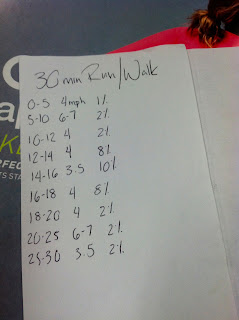 30 min Run/Walk
0-5 4mph 1%
5-10 6-7 2%
10-12 4 2%
12-14 4 8%
14-16 3.5 10%
16-18 4 8%
18-20 4 2%
20-25 6-7 2%
25-30 3.5 2%